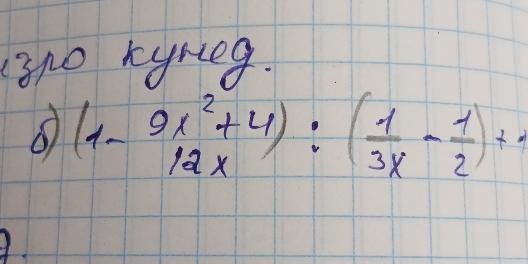 кунед.
б) (1 - 9x²+4 / 12x) : (1/3x - 1/2) +